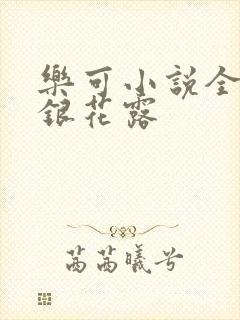 樂可小說全
銀花露
茜茜曦兮